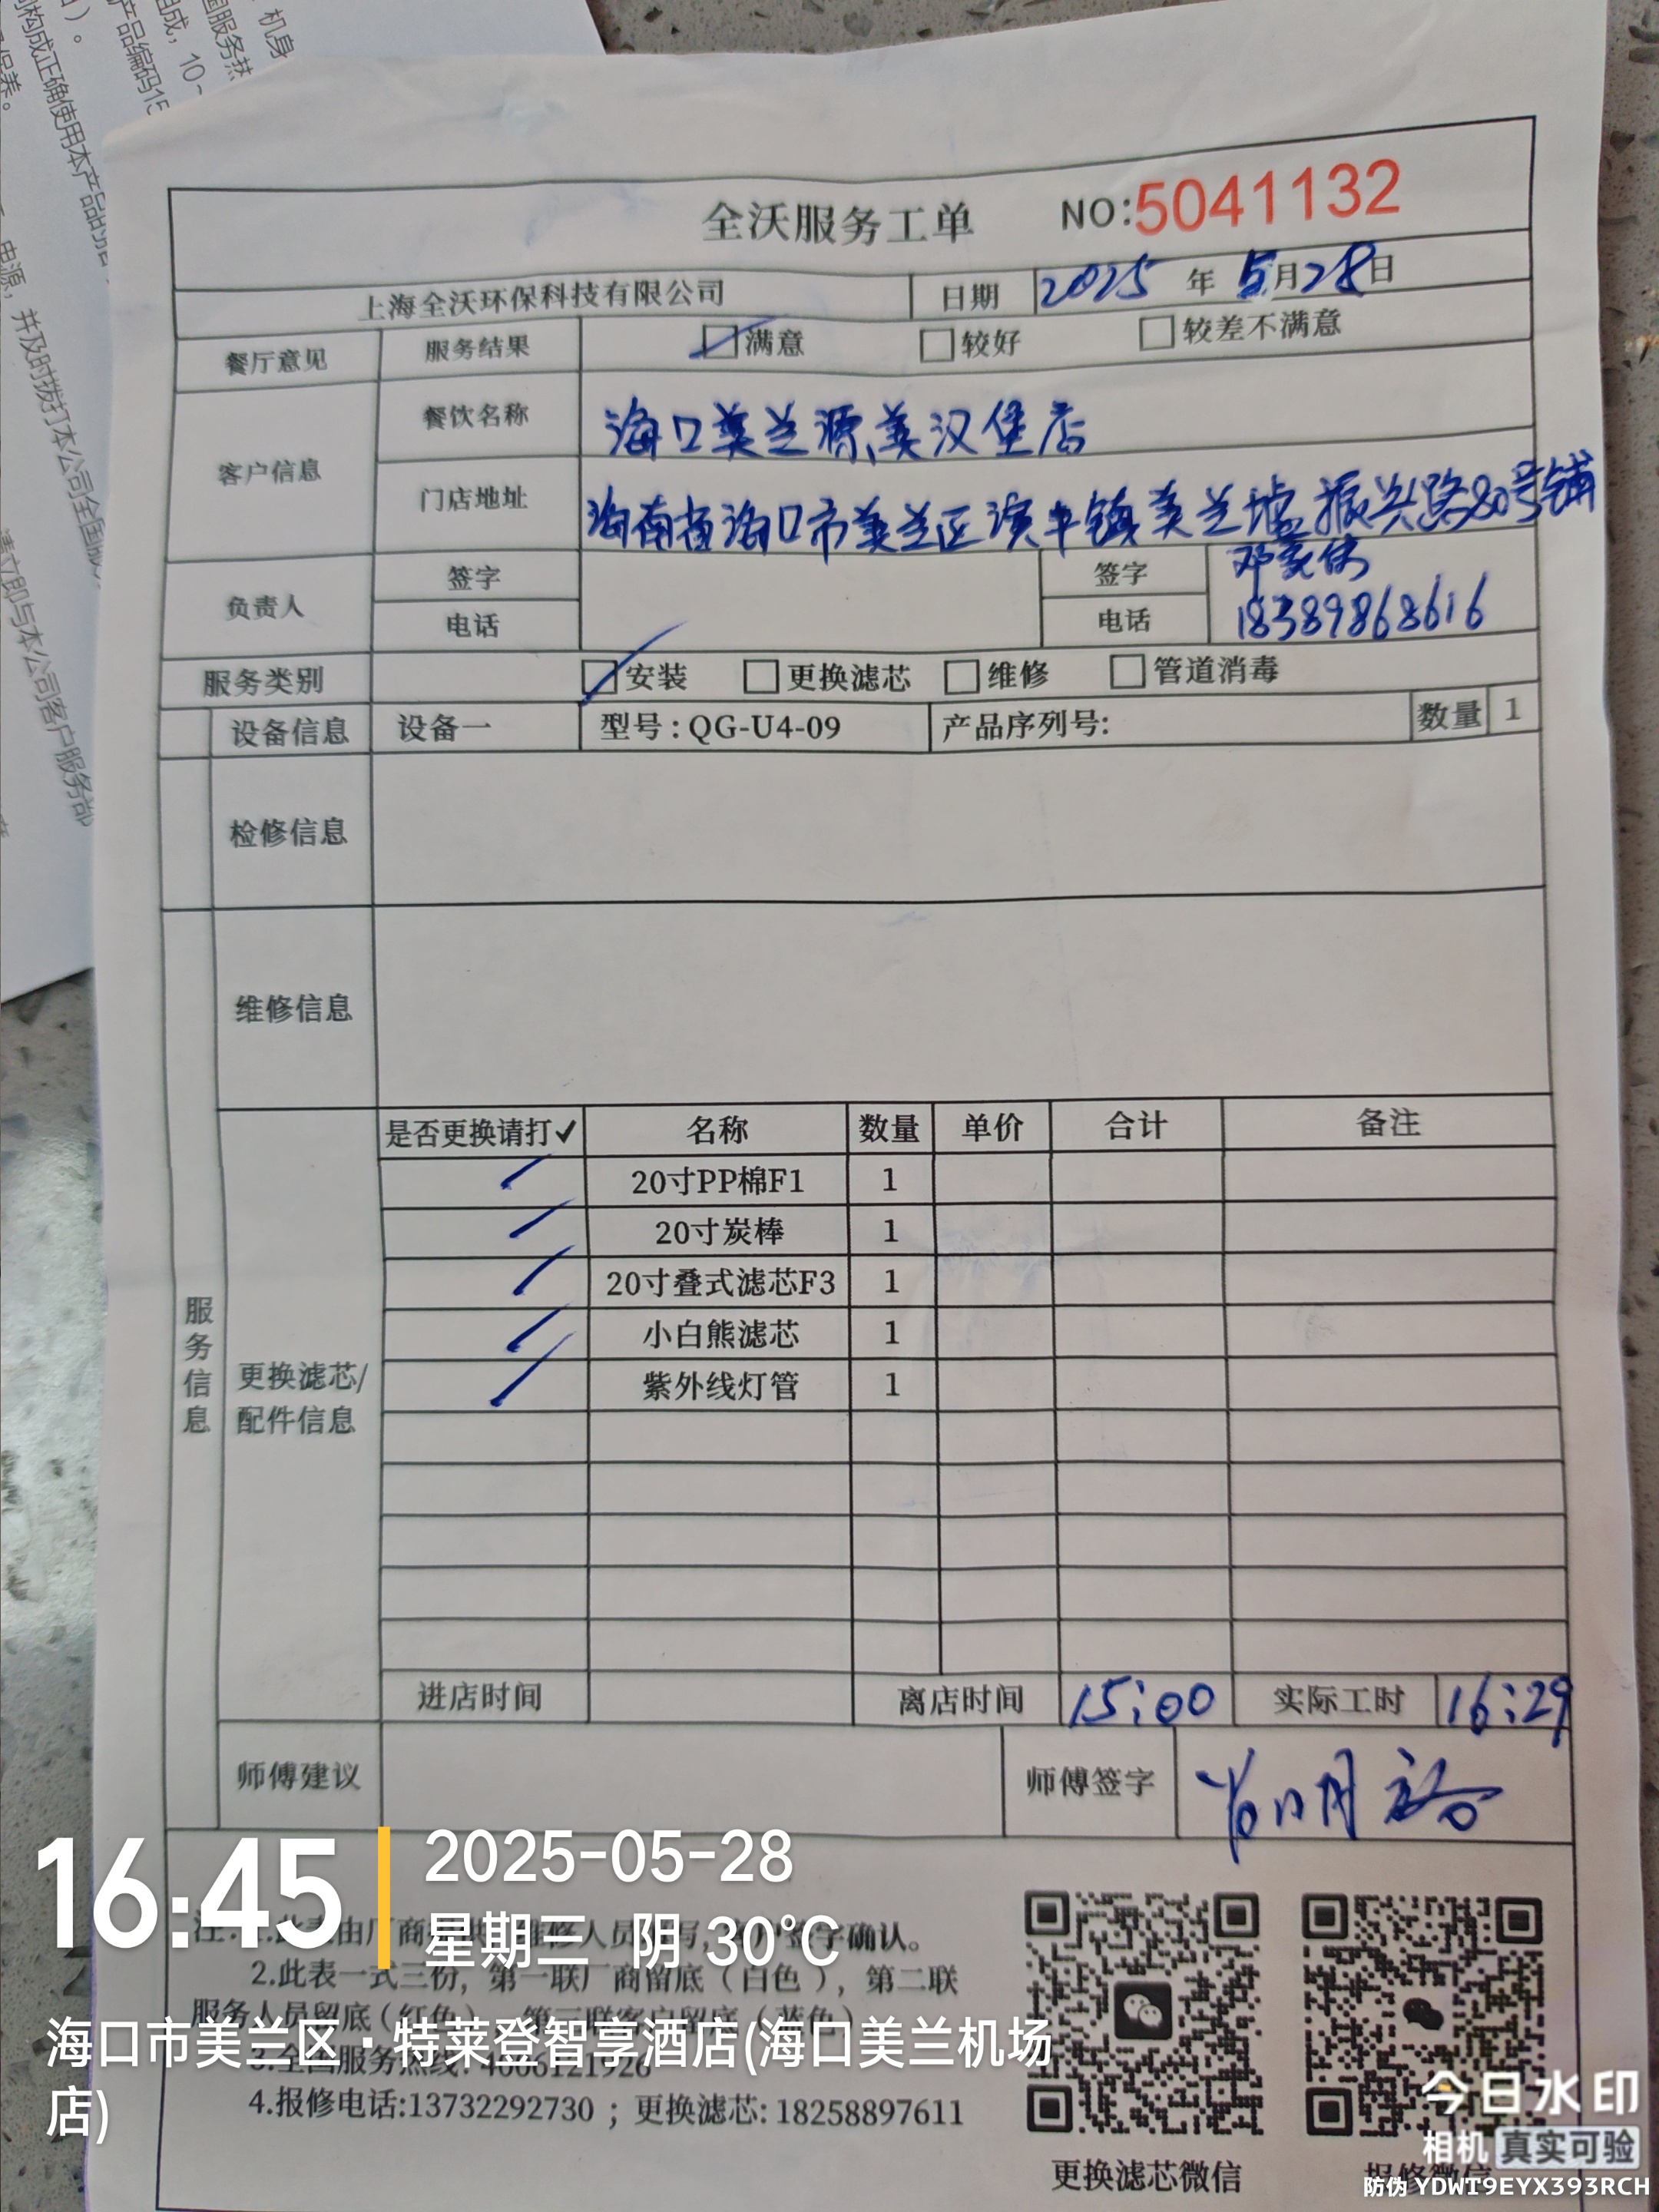 机身
国服务热
组成，10-
产品编码15
构成正确使用本产品出
保养。
电源，并及时拨打本公司全国服
请立即与本公司客户服务部
全沃服务工单 NO:5041132
上海全沃环保科技有限公司 日期 2025 年 5月28日
餐厅意见 服务结果 满意 较好 较差不满意
客户信息
餐饮名称 海口美兰源美汉堡店
门店地址 海南省海口市美兰区演丰镇美兰墟振兴路80号铺
负责人
签字 签字 邓
电话 电话 18389868616
服务类别 安装 更换滤芯 维修 管道消毒
设备信息 设备一 型号：QG-U4-09 产品序列号: 数量 1
检修信息
维修信息
服务信息
更换滤芯/
配件信息
是否更换请打✓ 名称 数量 单价 合计 备注
20寸PP棉F1 1
20寸炭棒 1
20寸叠式滤芯F3 1
小白熊滤芯 1
紫外线灯管 1
进店时间 离店时间 15:00 实际工时 16:29
师傅建议 师傅签字
注：1.此表由厂商 维修人员 写， 签字确认。
2.此表一式三份，第一联厂商留底（白色），第二联
服务人员留底（红色），第三联客户留底（蓝色）
3.全国服务热线：4006121926
4.报修电话:13732292730 ；更换滤芯: 18258897611
更换滤芯微信
报修微信
16:45
2025-05-28
星期三 阴 30°C
海口市美兰区·特莱登智享酒店(海口美兰机场
店)
今日水印
相机 真实可验
防伪 YDWI9EYX393RCH